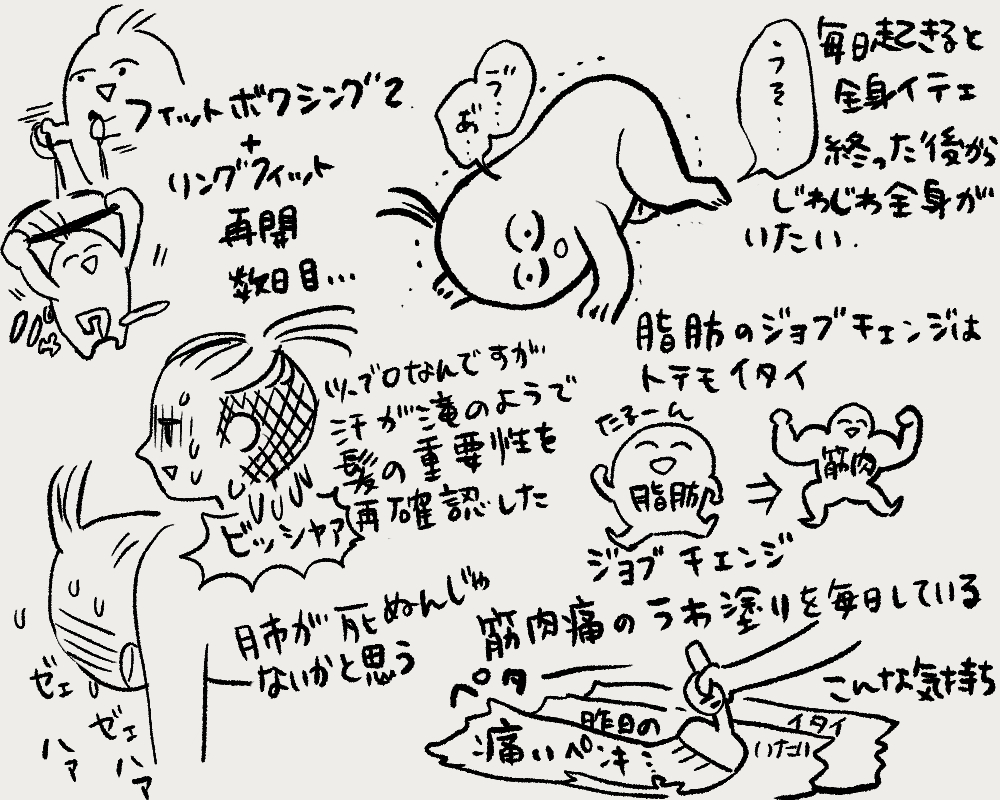 フィットボクシング2
+
リングフィット
再開
数日目…
ゔ…
あ゙…
うそ……
毎日起きると
全身イテェ
終った後から
じわじわ全身が
いたい.
ツーブロなんですが
汗が滝のようで
髪の重要性を
再確認した
ビッシャァ
脂肪のジョブチェンジは
トテモイタイ
たるーん
脂肪
⇒
筋肉
ジョブチェンジ
肺が死ぬんじゃ
ないかと思う
ゼェ
ゼェ
ハァ
ハァ
筋肉痛のうわ塗りを毎日している
こんな気持ち
ペタ
昨日の
イタイ
痛いペンキ…
いたい